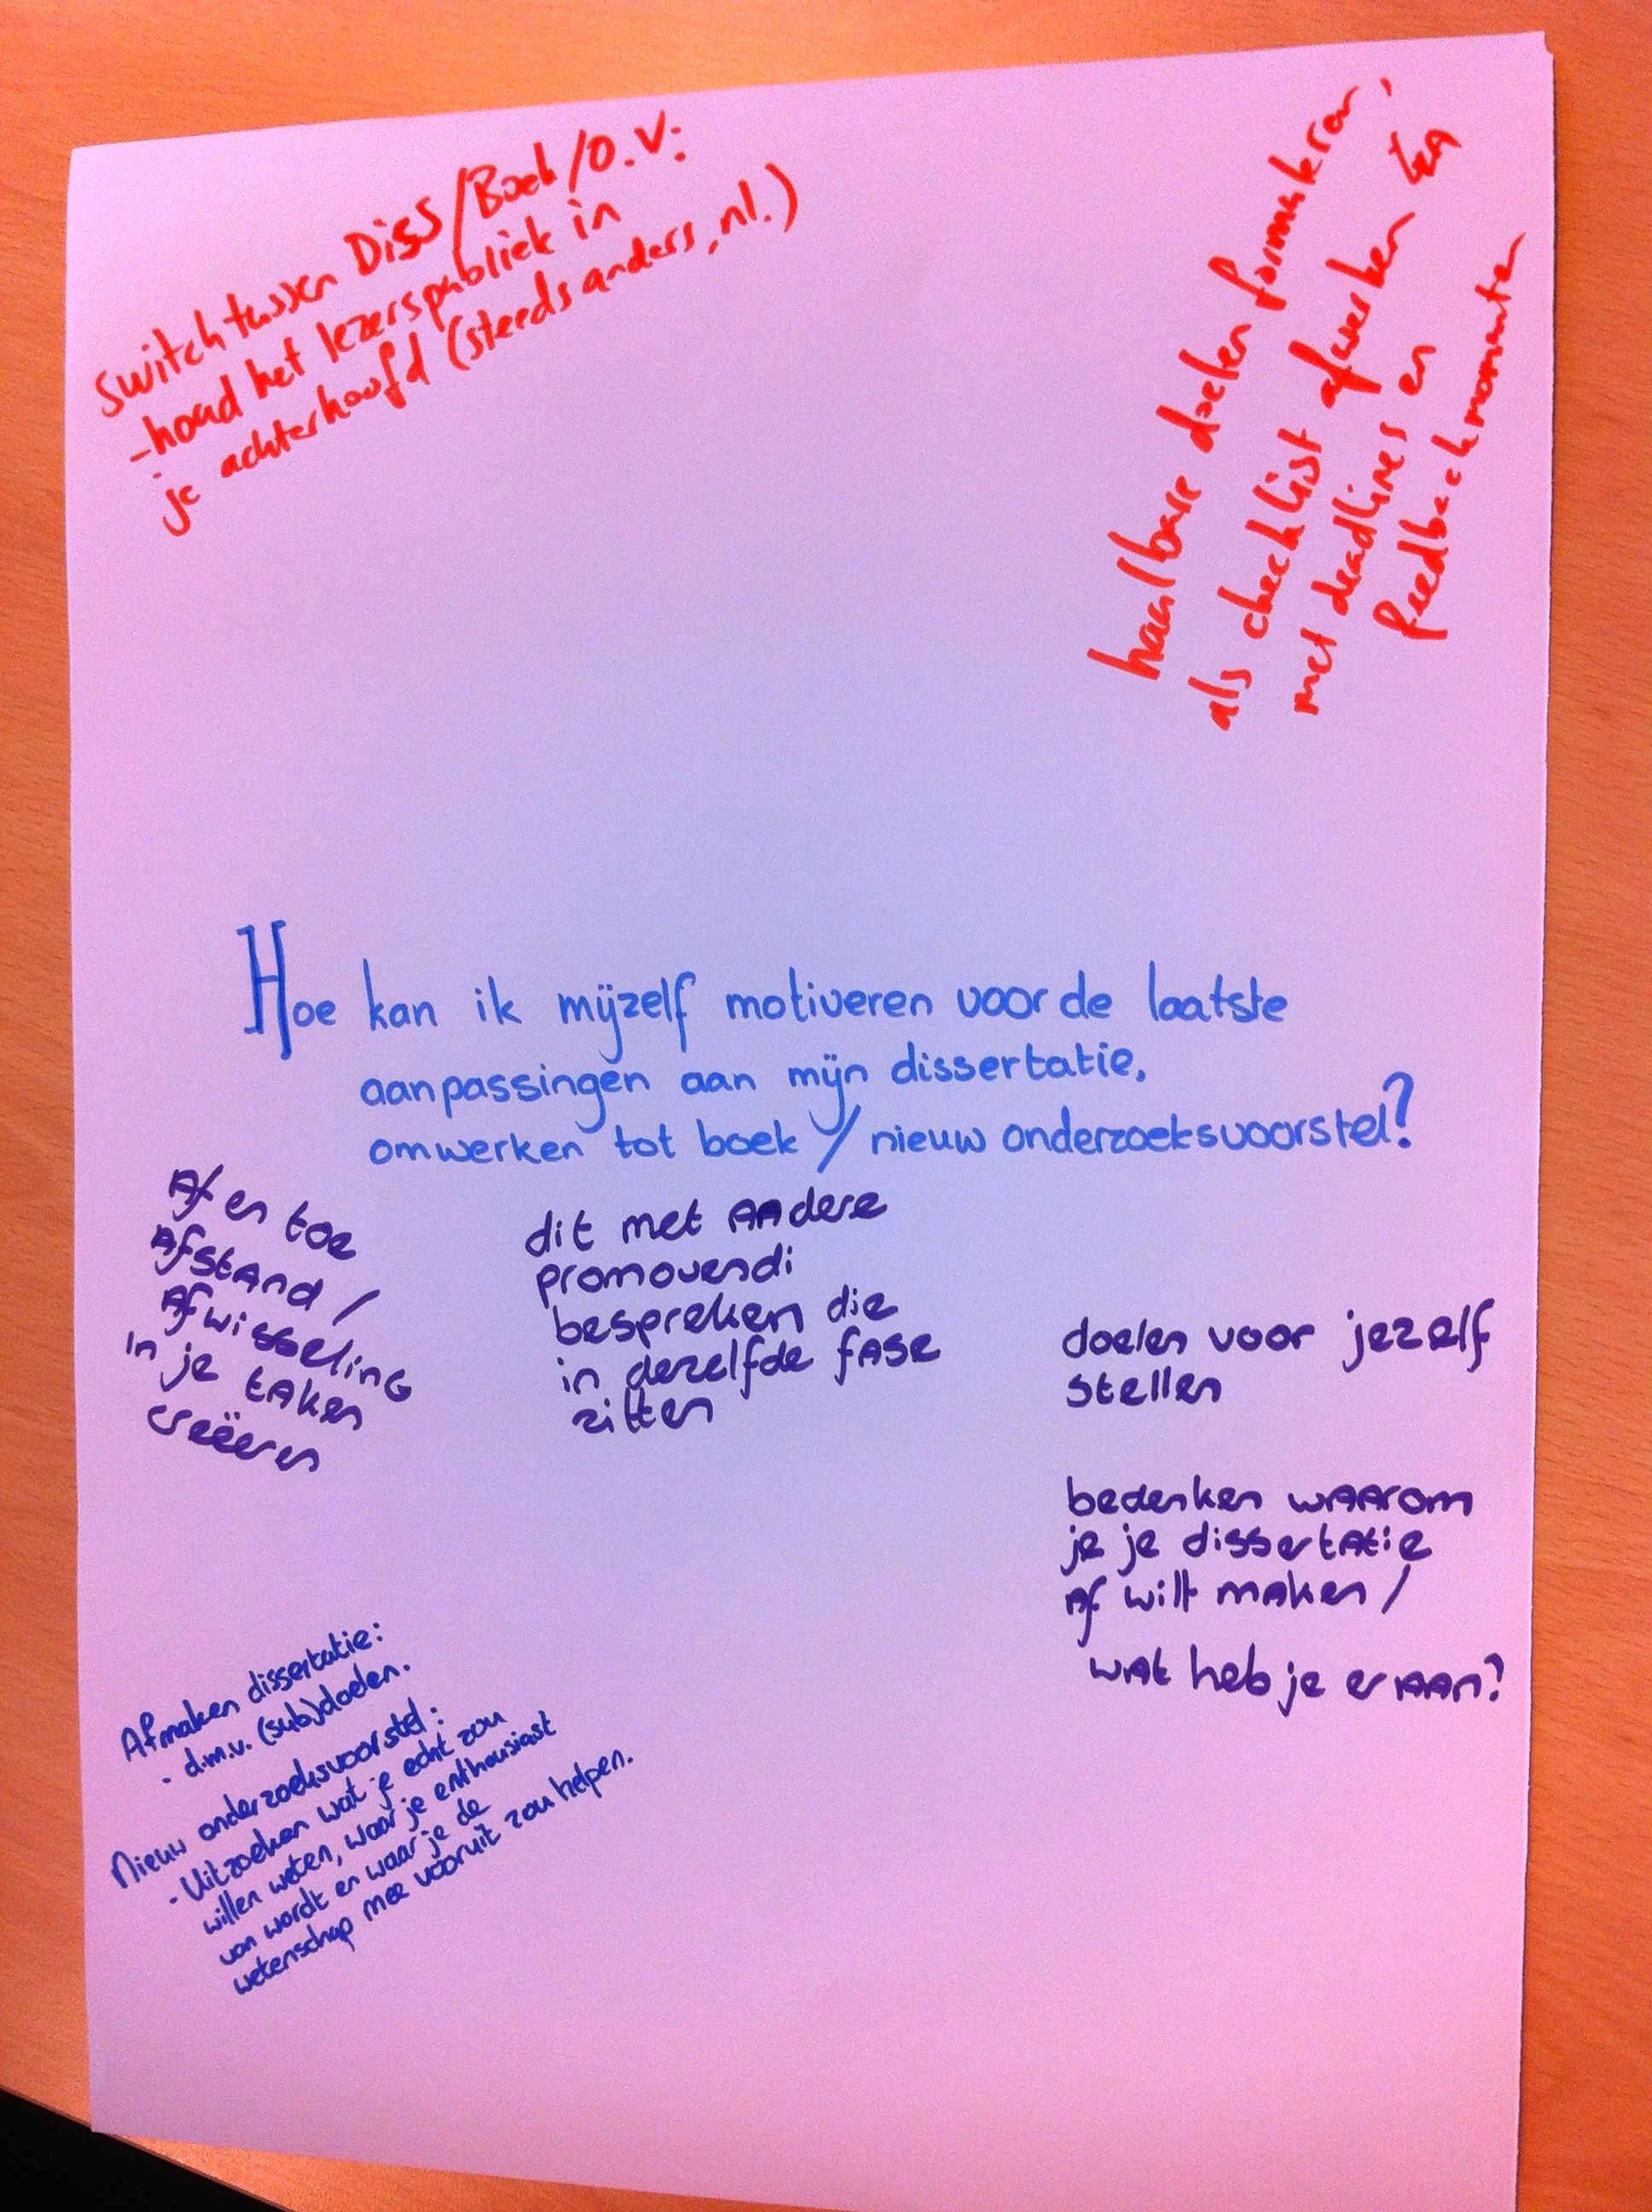 Switch tussen Diss/Boek/O.V.:
- houd het lezerspubliek in
je achterhoofd (steeds anders, nl.)
haalbare doelen
als checklist afwerken
met deadlines en
feedbackmomenten
Hoe kan ik mijzelf motiveren voor de laatste
aanpassingen aan mijn dissertatie,
omwerken tot boek / nieuw onderzoeksvoorstel?
Af en toe
Afstand /
Afwisseling
in je taken
creëren
dit met andere
promovendi
bespreken die
in dezelfde fase
zitten
doelen voor jezelf
stellen
bedenken waarom
je je dissertatie
af wilt maken /
wat heb je eraan?
Afmaken dissertatie:
- d.m.v. (sub)doelen.
Nieuw onderzoeksvoorstel:
- Uitzoeken wat je echt zou
willen weten, waar je enthousiast
van wordt en waar je de
wetenschap mee vooruit zou helpen.